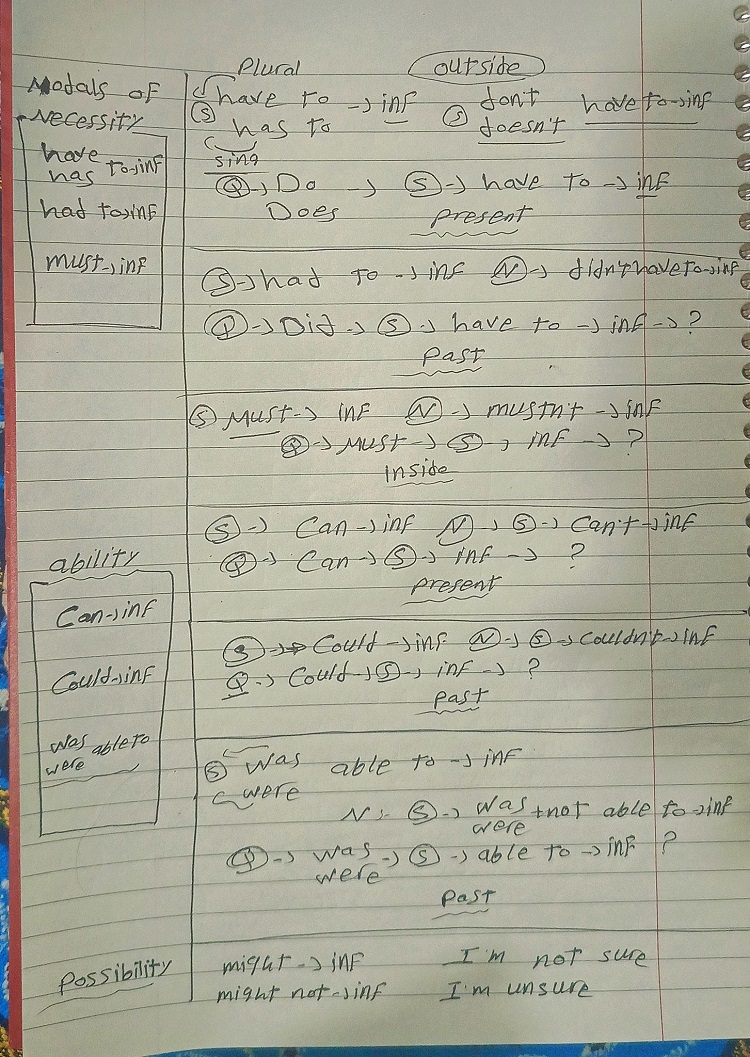 Plural outside
Modals of
Necessity
have
has to→inf
had to→inf
must→inf
Ⓢ have to → inf Ⓢ don't have to→inf
has to doesn't
sing
Ⓠ→ Do → Ⓢ→ have to → inf
Does present
Ⓢ→had to → inf Ⓝ→ didn't have to→inf
Ⓠ→Did→Ⓢ→ have to → inf→?
Past
Ⓢ Must→ inf Ⓝ→ mustn't →inf
Ⓠ→Must→Ⓢ, inf→?
inside
ability
Can→inf
Could→inf
was able to
were
Ⓢ→ Can→inf Ⓝ→ Ⓢ→ Can't→inf
Ⓠ→ Can→Ⓢ→ inf → ?
present
Ⓢ→ Could→inf Ⓝ→Ⓢ→Couldn't→inf
Ⓠ→ Could→Ⓢ→ inf→ ?
past
Ⓢ was able to → inf
were
N:- Ⓢ→ was +not able to→inf
were
Ⓠ→ was →Ⓢ→ able to→inf ?
were
past
possibility
might→inf I'm not sure
might not→inf I'm unsure